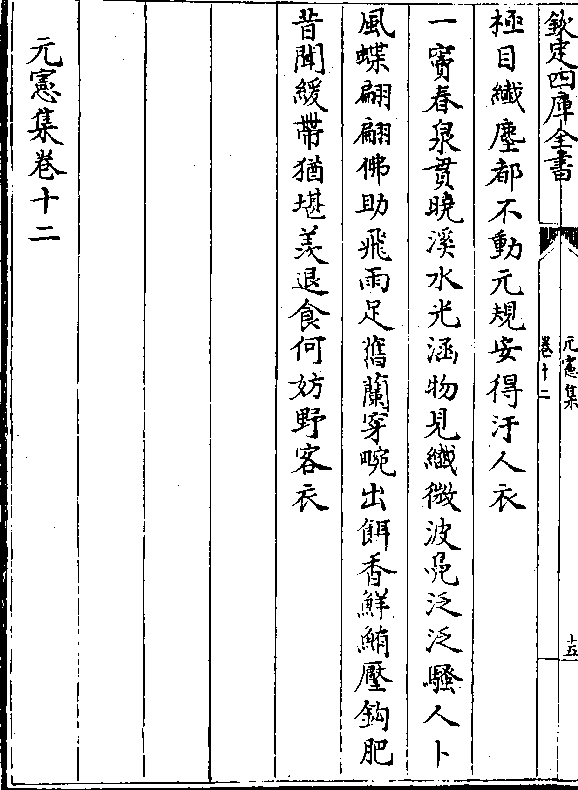 欽定四庫全書
元憲集
卷十二
十五
極目纎塵都不動元規安得汙人衣
一竇春泉貫曉溪水光涵物見纎微波凫泛泛騷人卜
風蝶翩翩佛助飛雨足舊蘭穿畹出餌香鮮鮪壓鈎肥
昔聞緩帶猶堪羡退食何妨野客衣
元憲集卷十二